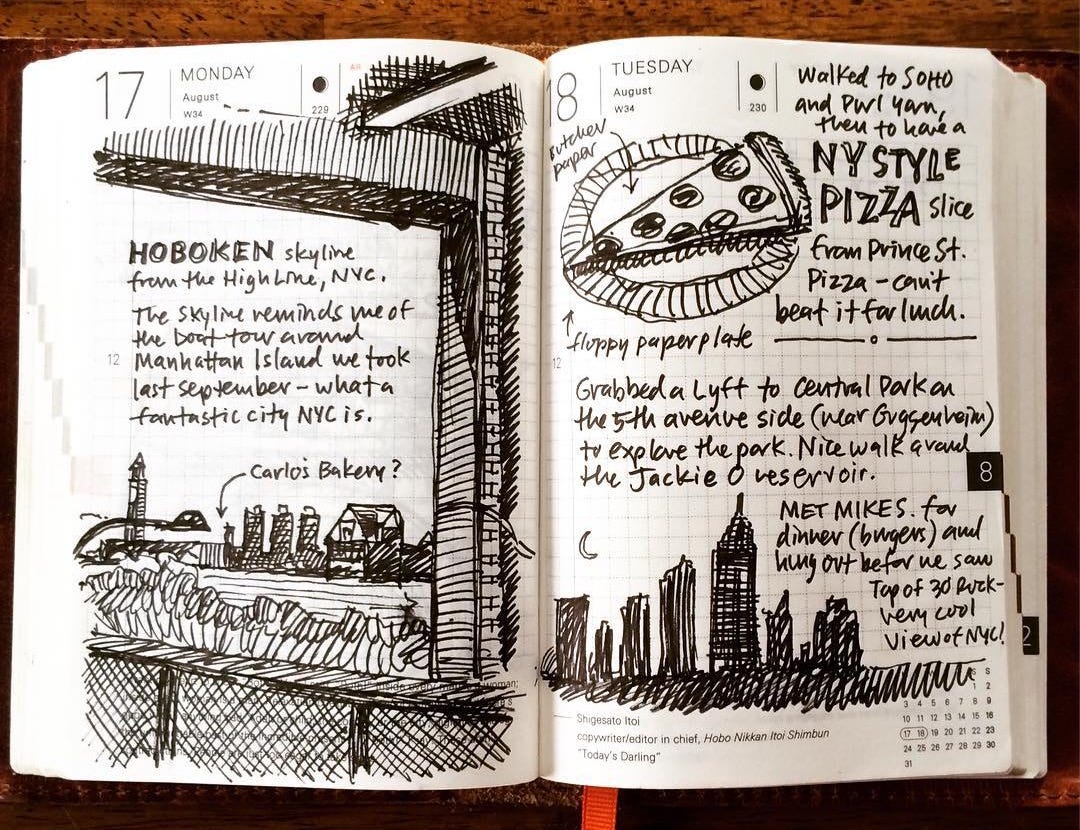 17
MONDAY
August
W34
229
HOBOKEN skyline
from the High Line, NYC.
The skyline reminds me of
the boat tour around
Manhattan Island we took
12
last september – what a
fantastic city NYC is.
Carlo's Bakery?
18
TUESDAY
August
W34
230
Walked to SOHO
and Purl Yarn,
then to have a
NY STYLE
PIZZA slice
from Prince St.
Pizza – can't
beat it for lunch.
butcher
paper
floppy paper plate
12
Grabbed a Lyft to Central Park on
the 5th avenue side (near Guggenheim)
to explore the park. Nice walk around
the Jackie O reservoir.
8
MET MIKES. for
dinner (burgers) and
hung out before we saw
Top of 30 Rock–
very cool
view of NYC!
2
Shigesato Itoi
copywriter/editor in chief, Hobo Nikkan Itoi Shimbun
"Today's Darling"
S S
1 2
3 4 5 6 7 8 9
10 11 12 13 14 15 16
17 18 19 20 21 22 23
24 25 26 27 28 29 30
31